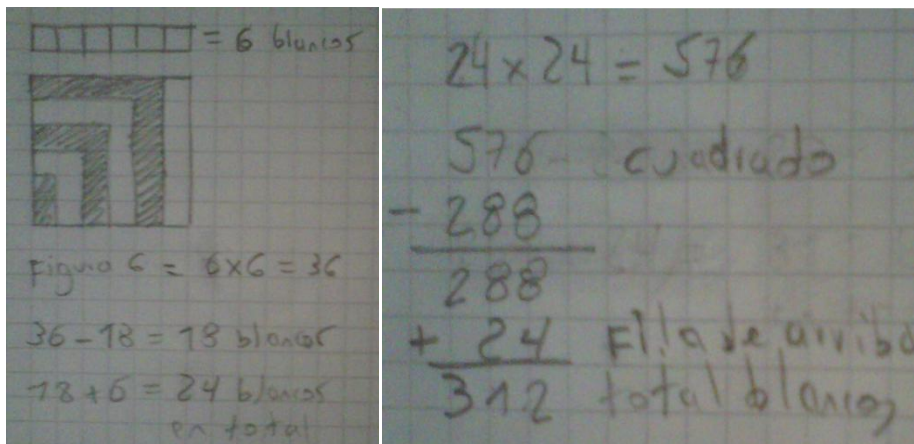 = 6 blancos
Figura 6 = 6x6 = 36
36 - 18 = 18 blancos
18 + 6 = 24 blancos
en total
24 x 24 = 576
576 cuadrado
- 288
288
+ 24 Fila de arriba
312 total blancos